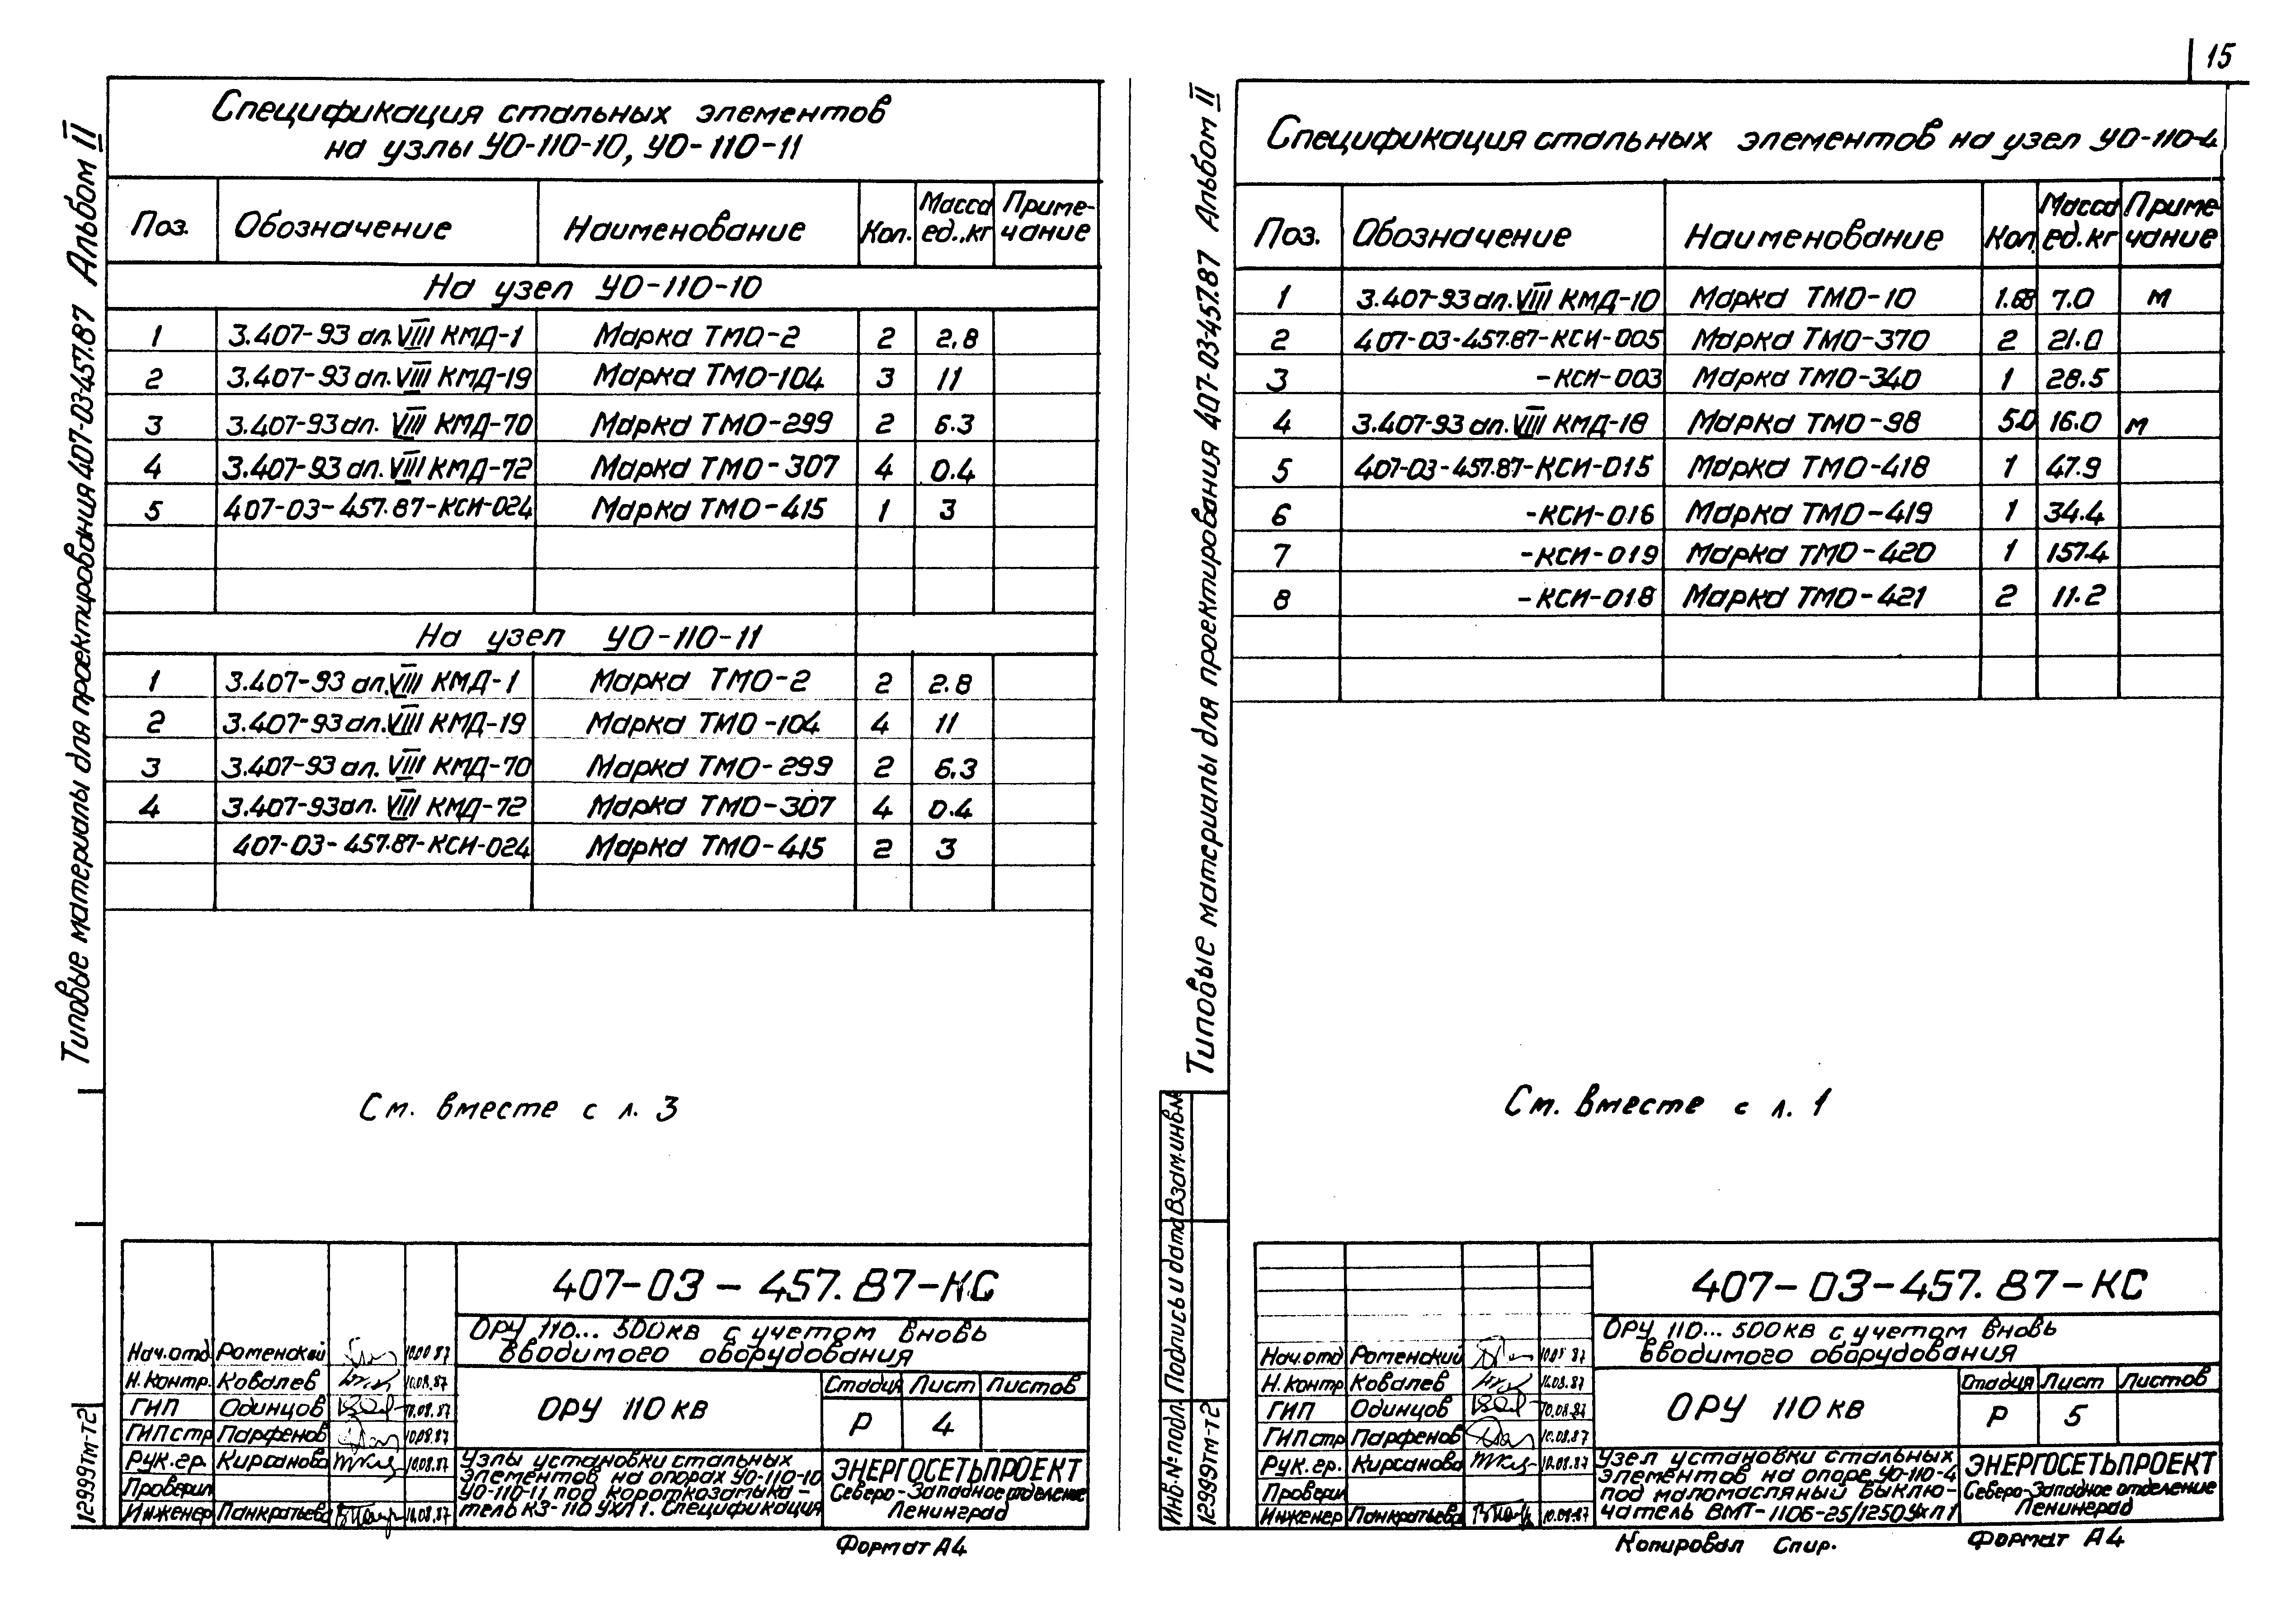 15
Типовые материалы для проектирования 407-03-457.87 Альбом II
Спецификация стальных элементов
на узлы УО-110-10, УО-110-11
Поз. Обозначение Наименование Кол. Масса ед., кг Приме-чание
На узел УО-110-10
1 3.407-93 ал. VIII КМД-1 Марка ТМО-2 2 2,8
2 3.407-93 ал. VIII КМД-19 Марка ТМО-104 3 11
3 3.407-93 ал. VIII КМД-70 Марка ТМО-299 2 6.3
4 3.407-93 ал. VIII КМД-72 Марка ТМО-307 4 0.4
5 407-03-457.87-КСИ-024 Марка ТМО-415 1 3
На узел УО-110-11
1 3.407-93 ал. VIII КМД-1 Марка ТМО-2 2 2.8
2 3.407-93 ал. VIII КМД-19 Марка ТМО-104 4 11
3 3.407-93 ал. VIII КМД-70 Марка ТМО-299 2 6.3
4 3.407-93 ал. VIII КМД-72 Марка ТМО-307 4 0.4
407-03-457.87-КСИ-024 Марка ТМО-415 2 3
См. вместе с л. 3
407-03-457.87-КС
ОРУ 110...500кв с учетом вновь
вводимого оборудования
Нач.отд Роменский
Н.контр. Ковалев 10.08.87
ГИП Одинцов 10.08.87
ГИП стр Парфенов 10.08.87
Рук.гр. Кирсанова 10.08.87
Проверил
Инженер Панкратьева 10.08.87
ОРУ 110 кв
Стадия Лист Листов
Р 4
Узлы установки стальных
элементов на опорах УО-110-10
УО-110-11 под короткозамыка-
тель КЗ-110 УХЛ1. Спецификация
ЭНЕРГОСЕТЬПРОЕКТ
Северо-Западное отделение
Ленинград
12999тм-т2
Формат А4
Типовые материалы для проектирования 407-03-457.87 Альбом II
Спецификация стальных элементов на узел УО-110-4
Поз. Обозначение Наименование Кол. Масса ед. кг Приме-чание
1 3.407-93 ал. VIII КМД-10 Марка ТМО-10 1.68 7.0 м
2 407-03-457.87-КСИ-005 Марка ТМО-370 2 21.0
3 -КСИ-003 Марка ТМО-340 1 28.5
4 3.407-93 ал. VIII КМД-18 Марка ТМО-98 5.0 16.0 м
5 407-03-457.87-КСИ-015 Марка ТМО-418 1 47.9
6 -КСИ-016 Марка ТМО-419 1 34.4
7 -КСИ-019 Марка ТМО-420 1 157.4
8 -КСИ-018 Марка ТМО-421 2 11.2
См. вместе с л. 1
Инв.№ подл. Подпись и дата Взам.инв.№
12999тм-т2
407-03-457.87-КС
ОРУ 110...500кв с учетом вновь
вводимого оборудования
Нач.отд Роменский
Н.контр Ковалев
ГИП Одинцов 10.08.87
ГИП стр Парфенов 10.08.87
Рук.гр. Кирсанова 10.08.87
Проверил
Инженер Панкратьева
ОРУ 110 кв
Стадия Лист Листов
Р 5
Узел установки стальных
элементов на опоре УО-110-4
под маломасляный выклю-
чатель ВМТ-110Б-25/1250УХЛ1
ЭНЕРГОСЕТЬПРОЕКТ
Северо-Западное отделение
Ленинград
Копировал Спир.
Формат А4